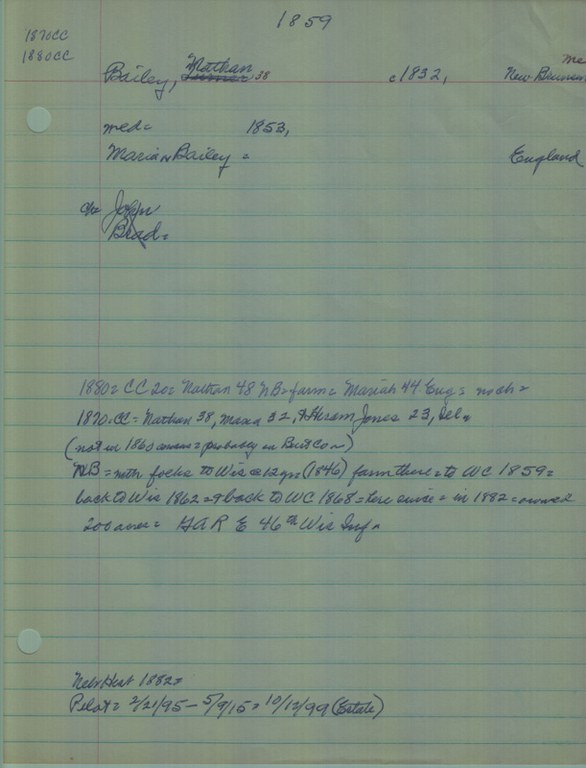 1859
1870CC
1880CC
me
Bailey, Nathan 38 c1832, New Brunsw
med= 1853,
Maria Bailey = England
ch= John
Brad=
1880= CC 20= Nathan 48 NB= farm= Mariah 44 Eng= no ch=
1870-CC= Nathan 38, Maria 32, + Hiram Jones 23, Del=
(not in 1860 census = probably in Burt Co=)
NB= with folks to Wis @ 12yrs (1846) farm there= to WC 1859=
back to Wis 1862= + back to WC 1868= here since= in 1882= owned
200 acres= GAR E 46th Wis Inf=
Nebr Hist 1882=
Pilot= 2/21/95 - 5/9/15= 10/12/99 (Estate)